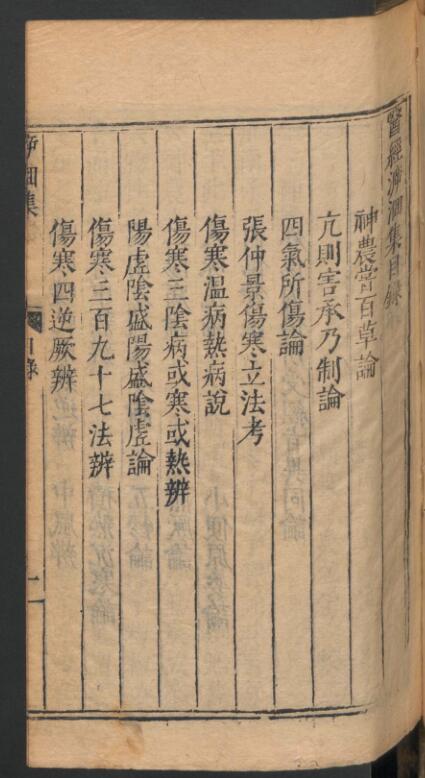 醫經溯洄集目錄
神農嘗百草論
亢則害承乃制論
四氣所傷論
張仲景傷寒立法考
傷寒温病熱病說
傷寒三陰病或寒或熱辨
陽虛陰盛陽盛陰虛論
傷寒三百九十七法辨
傷寒四逆厥辨
洄集
目錄